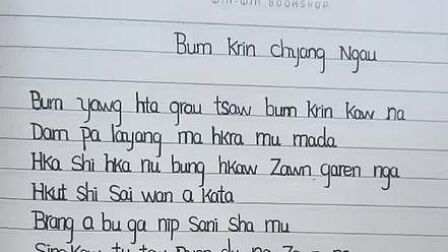 WIN-WIN BOOKSHOP
Bum Krin Chyang Ngau
Bum yawg hta grau tsaw bum krin kaw na
Dam pa layang ma hkra mu mada
Hka Shi hka nu bung hkaw Zawn garen nga
Hkut Shi Sai wan a kata
Brang a bu ga nip Sani Sha mu